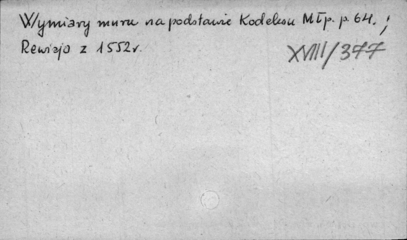 Wymiary muru na podstawie Kodeksu Młp. p. 64. ;
Rewizja z 1552 r.
XVIII/377